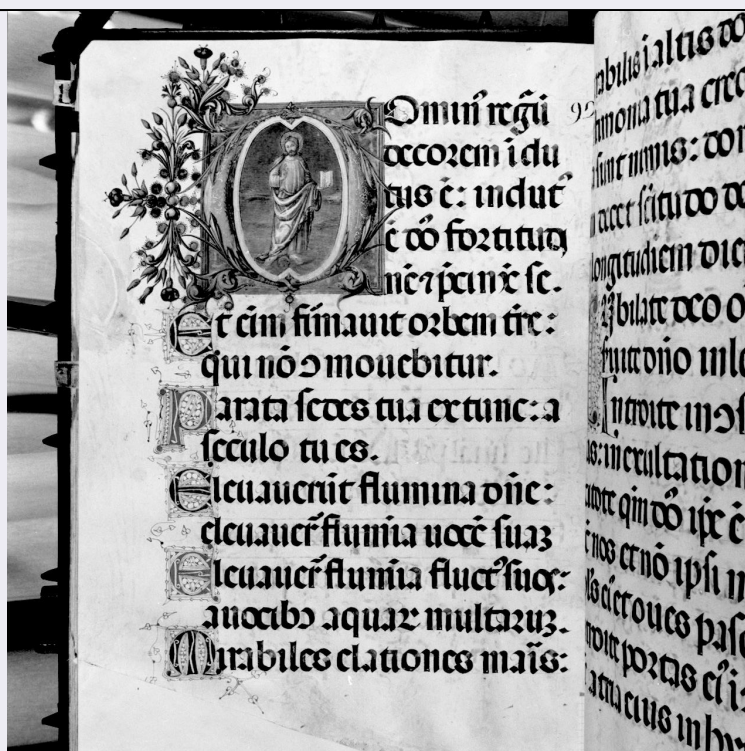 DOmin᷒ regn̄
decorem īdu
tus ē: indut᷒
ē dō fortitud
inē ⁊ p̄cinx̄ se.
Et eīm firmauit orbem tr̄e:
qui nō ↄmouebitur.
Parata sedes tua ex tunc: a
seculo tu es.
Eleuauerūt flumina dn̄e:
eleuauer̄ flumīa uocē suaꝫ
Eleuauer̄ flumīa fluct᷒ suos:
a uocibꝰ aquaꝝ multaruꝫ.
Mirabiles elationes maīs:
92
rabilis ī altis do
timonia tua cred
sunt nimis: dom
longitudiem die
Jubilate deo o
seruite dn̄o in le
Introite in ↄs
in exultation
qm̄ dō ip̄e ē
nos et nō ipsi n
eī et oues pas
portas eī i
atria eius in hy